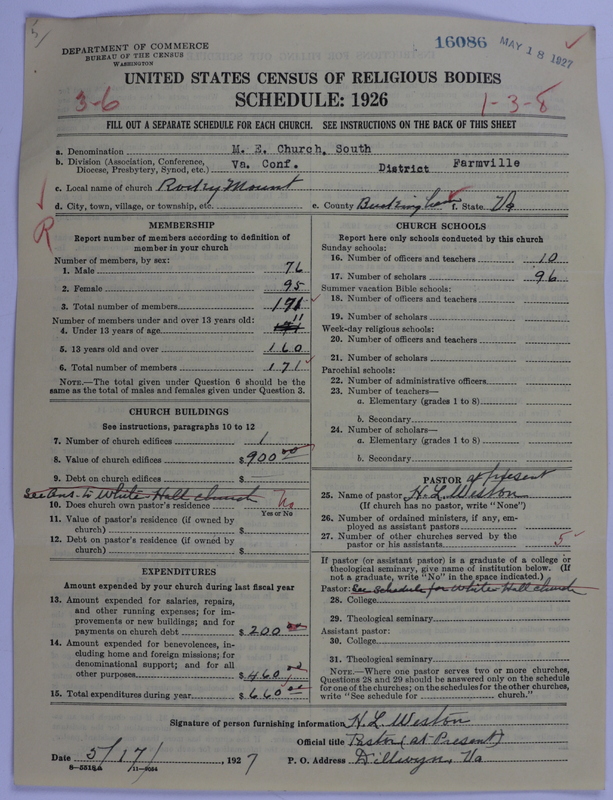 5
DEPARTMENT OF COMMERCE
BUREAU OF THE CENSUS
WASHINGTON
16086 MAY 18 1927
UNITED STATES CENSUS OF RELIGIOUS BODIES
3-6 SCHEDULE: 1926 1-3-8
FILL OUT A SEPARATE SCHEDULE FOR EACH CHURCH. SEE INSTRUCTIONS ON THE BACK OF THIS SHEET
a. Denomination M. E. Church, South
b. Division (Association, Conference, Diocese, Presbytery, Synod, etc.) Va. Conf. District Farmville
c. Local name of church Rocky Mount
d. City, town, village, or township, etc. e. County Buckingham f. State Va
R
MEMBERSHIP
Report number of members according to definition of
member in your church
Number of members, by sex:
1. Male 76
2. Female 95
3. Total number of members 171
Number of members under and over 13 years old:
4. Under 13 years of age 171 11
5. 13 years old and over 160
6. Total number of members 171
NOTE.—The total given under Question 6 should be the
same as the total of males and females given under Question 3.
CHURCH BUILDINGS
See instructions, paragraphs 10 to 12
7. Number of church edifices 1
8. Value of church edifices $ 900 00
9. Debt on church edifices $
See Ans. to White Hall church
10. Does church own pastor's residence No
Yes or No
11. Value of pastor's residence (if owned by
church) $
12. Debt on pastor's residence (if owned by
church) $
EXPENDITURES
Amount expended by your church during last fiscal year
13. Amount expended for salaries, repairs,
and other running expenses; for im-
provements or new buildings; and for
payments on church debt $ 200 00
14. Amount expended for benevolences, in-
cluding home and foreign missions; for
denominational support; and for all
other purposes $ 460 00
15. Total expenditures during year $ 660 00
CHURCH SCHOOLS
Report here only schools conducted by this church
Sunday schools:
16. Number of officers and teachers 10
17. Number of scholars 96
Summer vacation Bible schools:
18. Number of officers and teachers
19. Number of scholars
Week-day religious schools:
20. Number of officers and teachers
21. Number of scholars
Parochial schools:
22. Number of administrative officers
23. Number of teachers—
a. Elementary (grades 1 to 8)
b. Secondary
24. Number of scholars—
a. Elementary (grades 1 to 8)
b. Secondary
PASTOR at present
25. Name of pastor H. L. Weston
(If church has no pastor, write "None")
26. Number of ordained ministers, if any, em-
ployed as assistant pastors
27. Number of other churches served by the
pastor or his assistants 5
If pastor (or assistant pastor) is a graduate of a college or
theological seminary, give name of institution below. (If
not a graduate, write "No" in the space indicated.)
Pastor: See Schedule for White Hall church
28. College
29. Theological seminary
Assistant pastor:
30. College
31. Theological seminary
NOTE.—Where one pastor serves two or more churches,
Questions 28 and 29 should be answered only on the schedule
for one of the churches; on the schedules for the other churches,
write "See schedule for church."
Signature of person furnishing information H. L. Weston
Official title Pastor (at Present)
Date 5/17/, 1927 P. O. Address Dillwyn, Va
8—5518a 11—9054